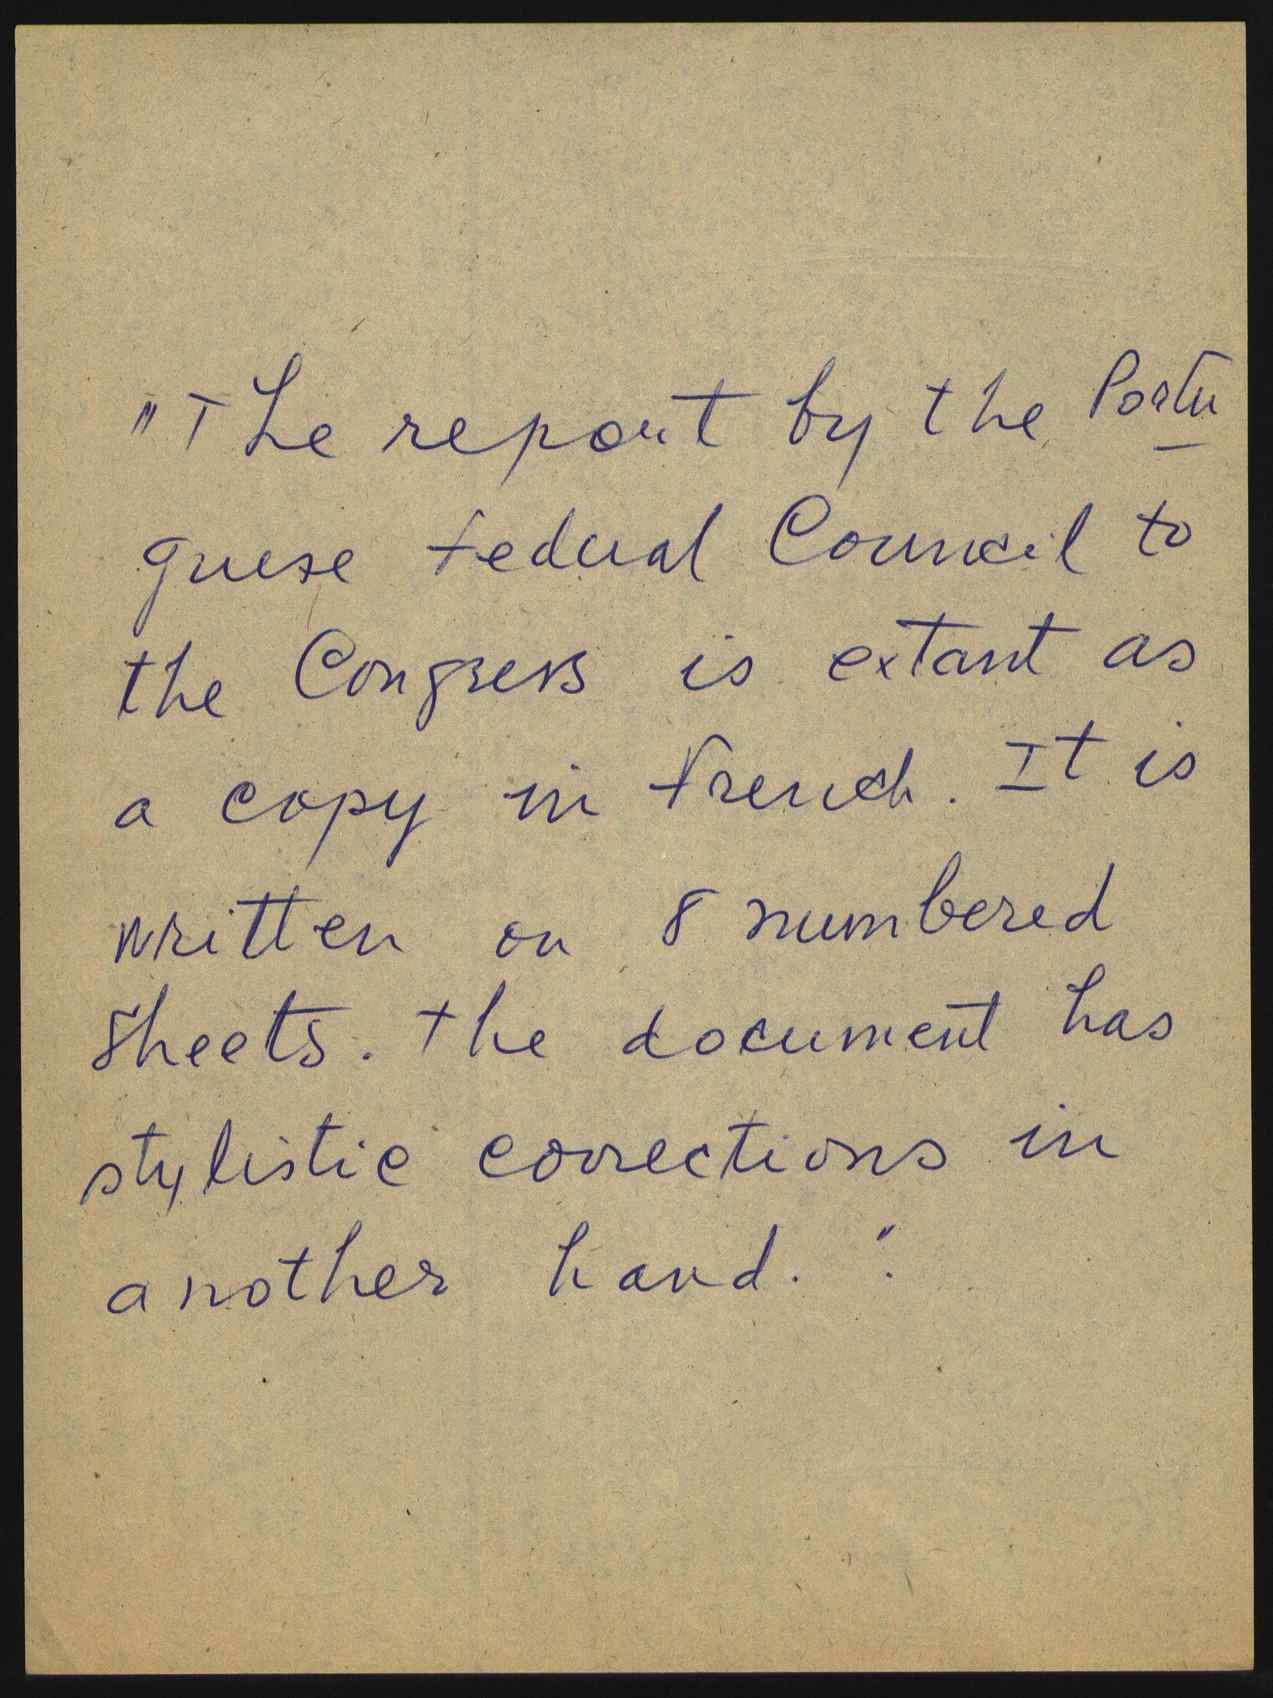 "The report by the Portu
guese Federal Council to
the Congress is extant as
a copy in French. It is
written on 8 numbered
sheets. The document has
stylistic corrections in
another hand.".